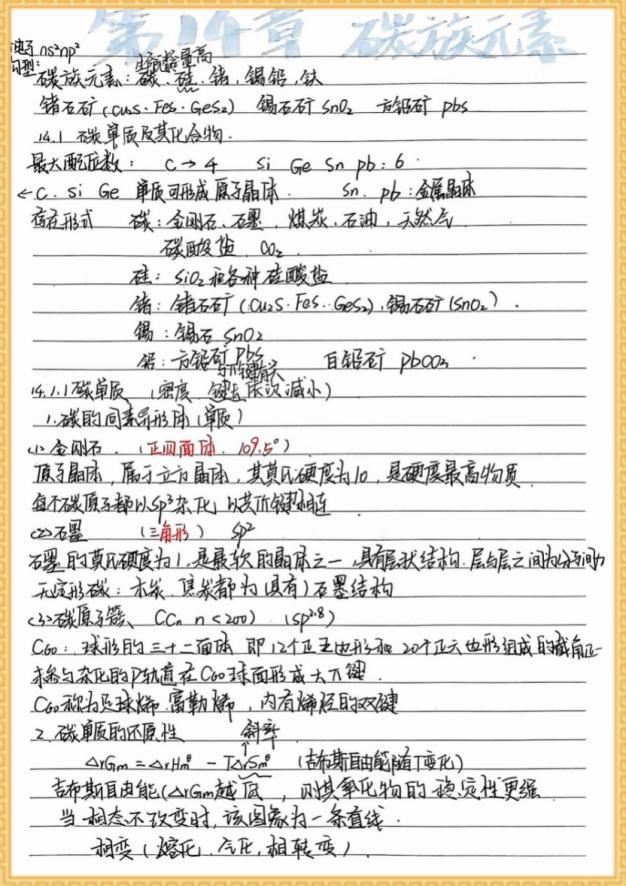 第14章 碳族元素
电子构型: ns²np²
生命 能量高
碳族元素：碳、硅、锗、锡铅、鈇
锗石矿(CuS·FeS·GeS₂) 锡石矿 SnO₂ 方铅矿 pbs
14.1 碳单质及其化合物.
最大配位数： C→4 Si Ge Sn pb：6 .
←C. Si Ge 单质可形成原子晶体. Sn. pb：金属晶体
存在形式 碳：金刚石、石墨，煤炭，石油，天然气
碳酸盐. CO₂ .
硅： SiO₂和各种硅酸盐
锗：锗石矿(Cu2S·FeS·GeS₂),锡石矿(SnO₂) .
锡：锡石 SnO₂
铅：方铅矿 pbs 白铅矿 pbCO₃ .
与π键有关
14.1.1碳单质 (密度、键长依次减小)
1.碳的同素异形体(单质)
(1)金刚石. (正四面体. 109.5°)
原子晶体，属于立方晶体，其莫氏硬度为10，是硬度最高物质.
每个碳原子都以sp³杂化 以共价键相连
(2)石墨 (三角形) sp²
石墨的莫氏硬度为1,是最软的晶体之一，具有层状结构.层与层之间为分子间力
无定形碳：木炭、焦炭都为(具有)石墨结构
(3)碳原子簇、 (Cn n<200) (sp2.8)
C60：球形的三十二面体 即12个正五边形和20个正六边形组成的截角正
未参与杂化的P轨道在C60球面形成大π键.
C60称为足球烯.富勒烯，内有烯烃的双键
2.碳单质的还原性 斜率
△rGm=△rHmθ - T△rSmθ (吉布斯自由能随T变化)
吉布斯自由能(△rGm越低 ，则其氧化物的稳定性更强
当相态不改变时,该图象为一条直线.
相变(熔化、气化、相转变).